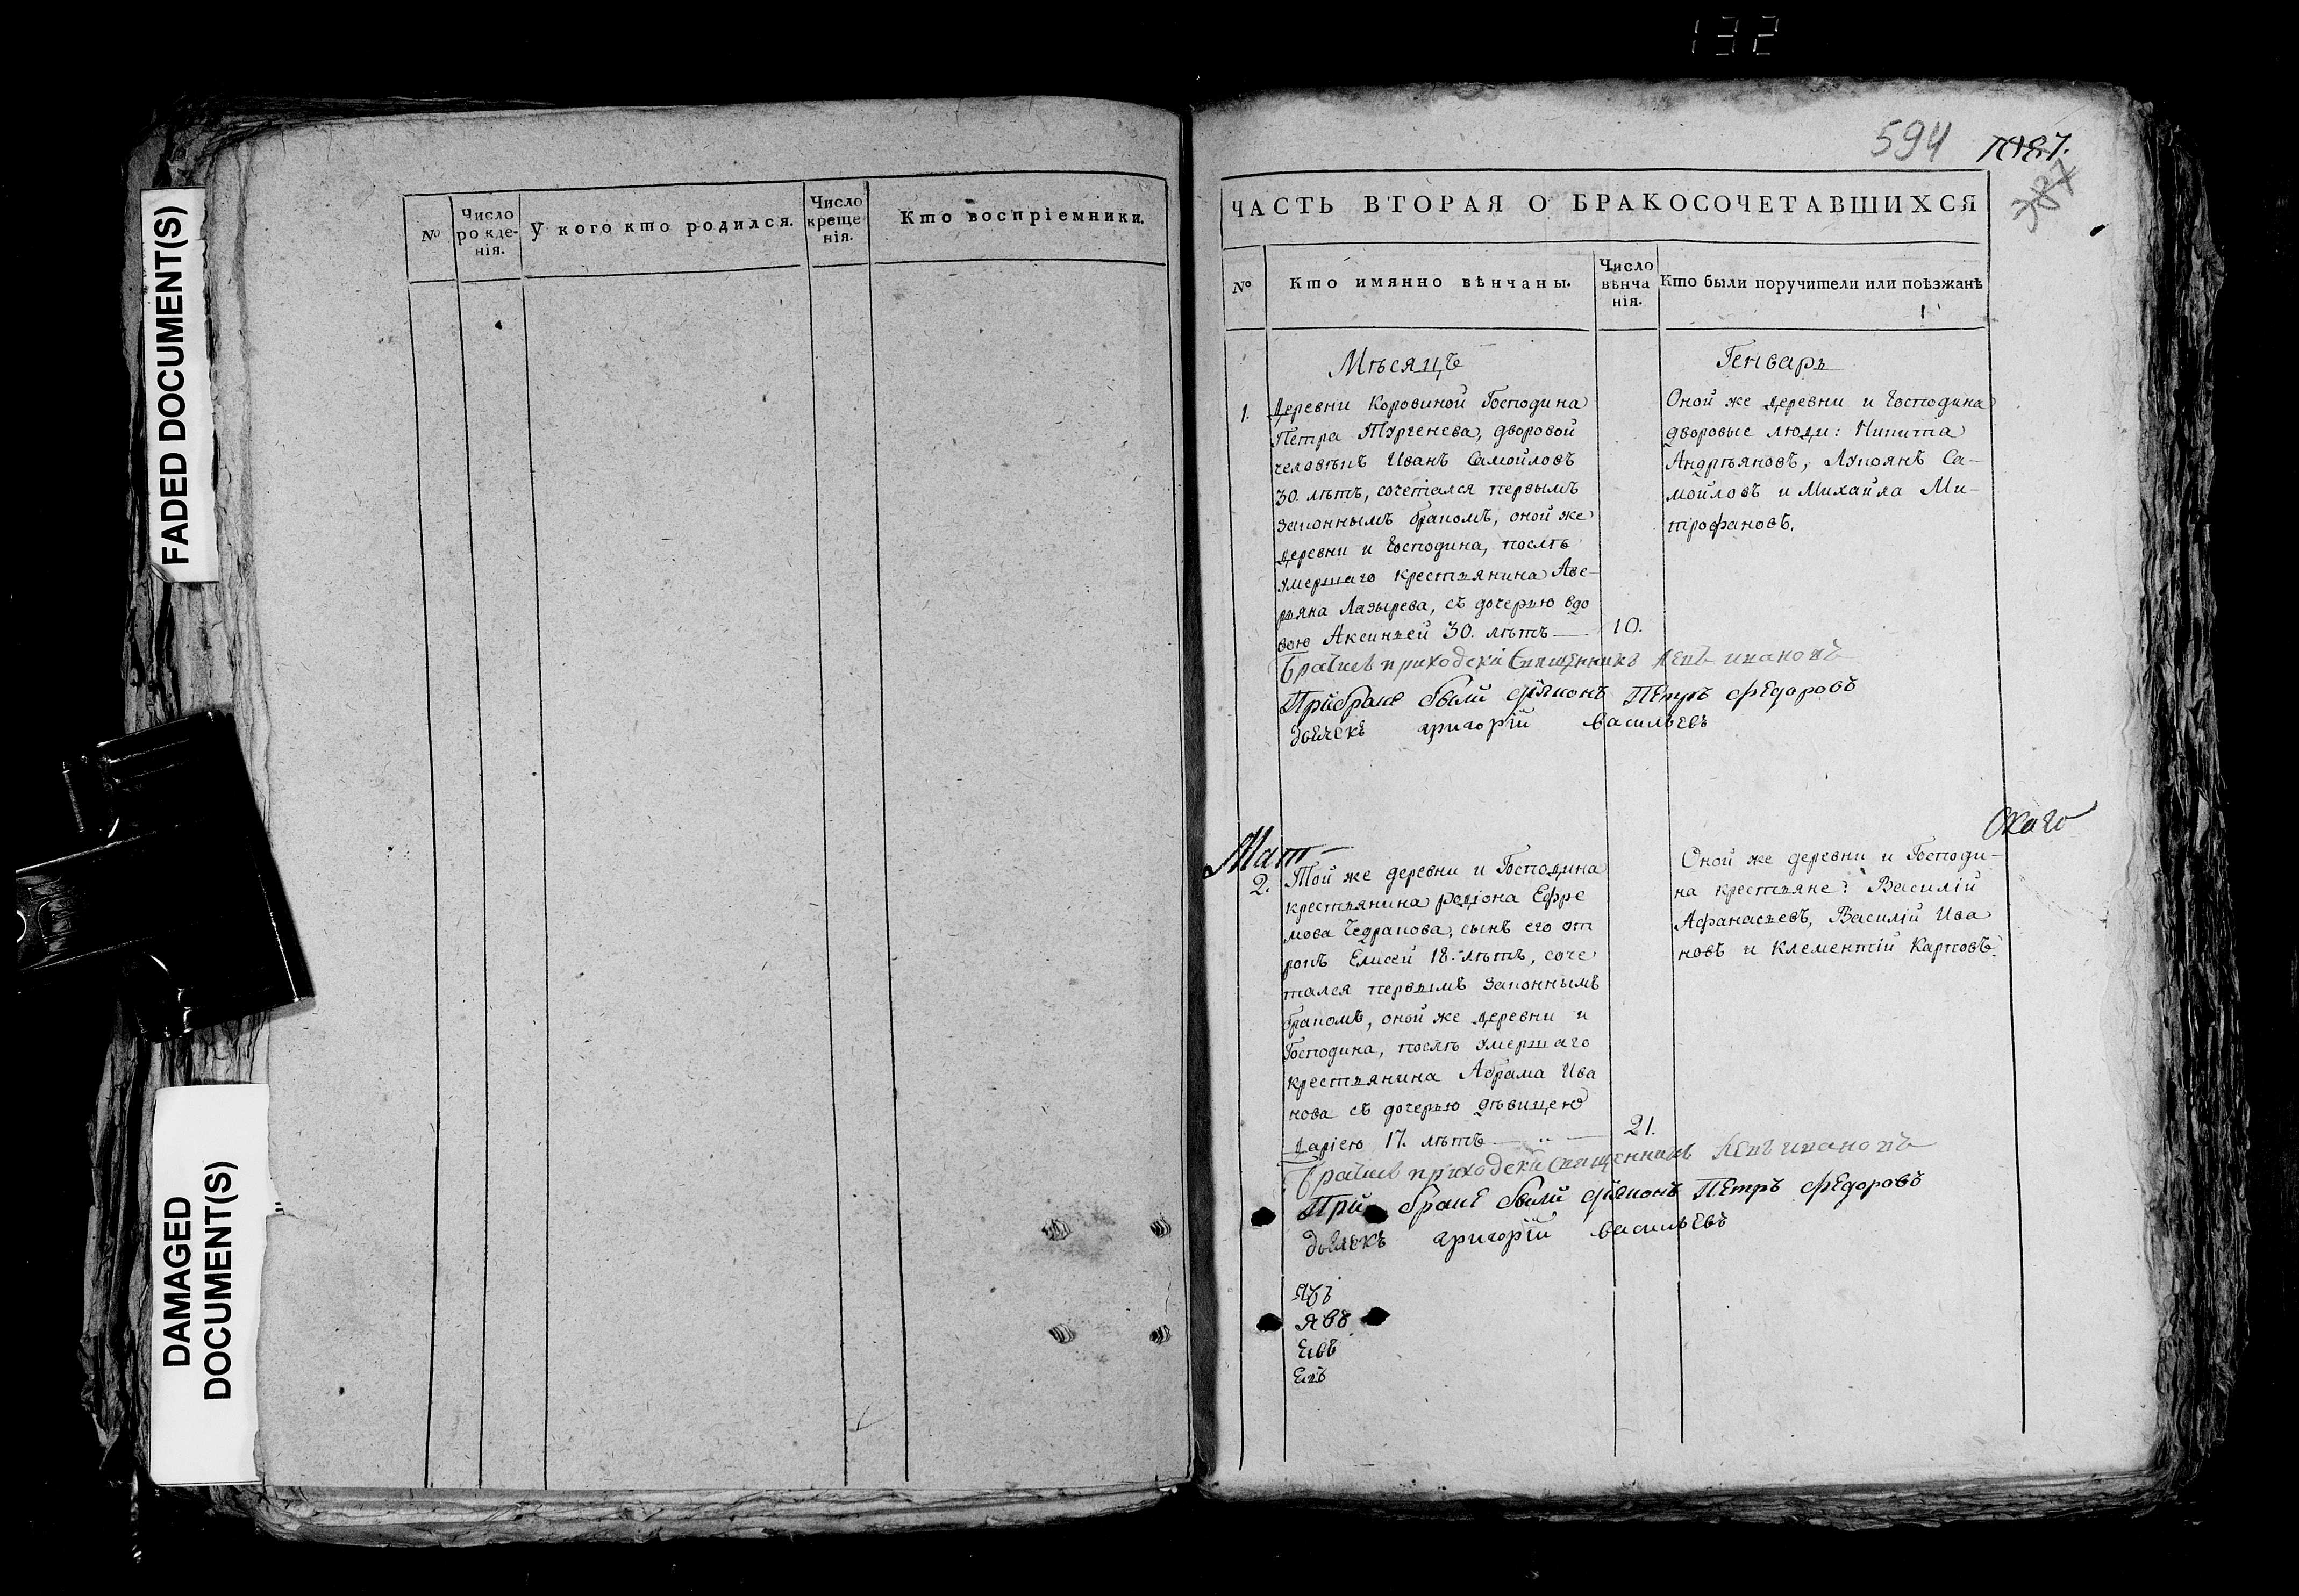 132
FADED DOCUMENT(S)
DAMAGED
DOCUMENT(S)
№
Число
рожде-
нія.
У кого кто родился.
Число
креще-
нія.
Кто воспріемники.
594
1087.
387
ЧАСТЬ ВТОРАЯ О БРАКОСОЧЕТАВШИХСЯ
№
Кто имянно вѣнчаны.
Число
вѣнча
нія.
Кто были поручители или поѣзжанѣ
Мѣсяцъ
Генварь
1.
Деревни Коровиной Господина
Петра Тургенева, дворовой
человѣкъ Иванъ Самойловъ
30. лѣтъ, сочетался первымъ
законнымъ бракомъ, оной же
деревни и Господина, послѣ
умершаго крестьянина Аве-
рьяна Лазырева, съ дочерью вдо
вою Аксиньей 30. лѣтъ
10.
Оной же деревни и Господина
дворовые люди: Никита
Андрѣяновъ, Лукоянъ Са-
мойловъ и Михайла Ми-
трофановъ.
приходски Священникъ Левъ ивановъ
При браке были дияконъ Петръ Федоровъ
дьячекъ григорій васильевъ
Мат-
скаго
2.
Той же деревни и Господина
крестьянина родіона Ефре
мова Чедракова, сынъ его от
рокъ Елисей 18. лѣтъ, соче
тался первымъ законнымъ
бракомъ, оной же деревни и
Господина, послѣ умершаго
крестьянина Абрама Ива
нова съ дочерью дѣвицею
Даріею 17. лѣтъ
21.
Оной же деревни и Господи-
на крестьяне: Василій
Афанасьевъ, Василій Ива
новъ и Клементій Карповъ.
приходски Священникъ Левъ ивановъ
При браке были дияконъ Петръ Федоровъ
дьячекъ григорій васильевъ